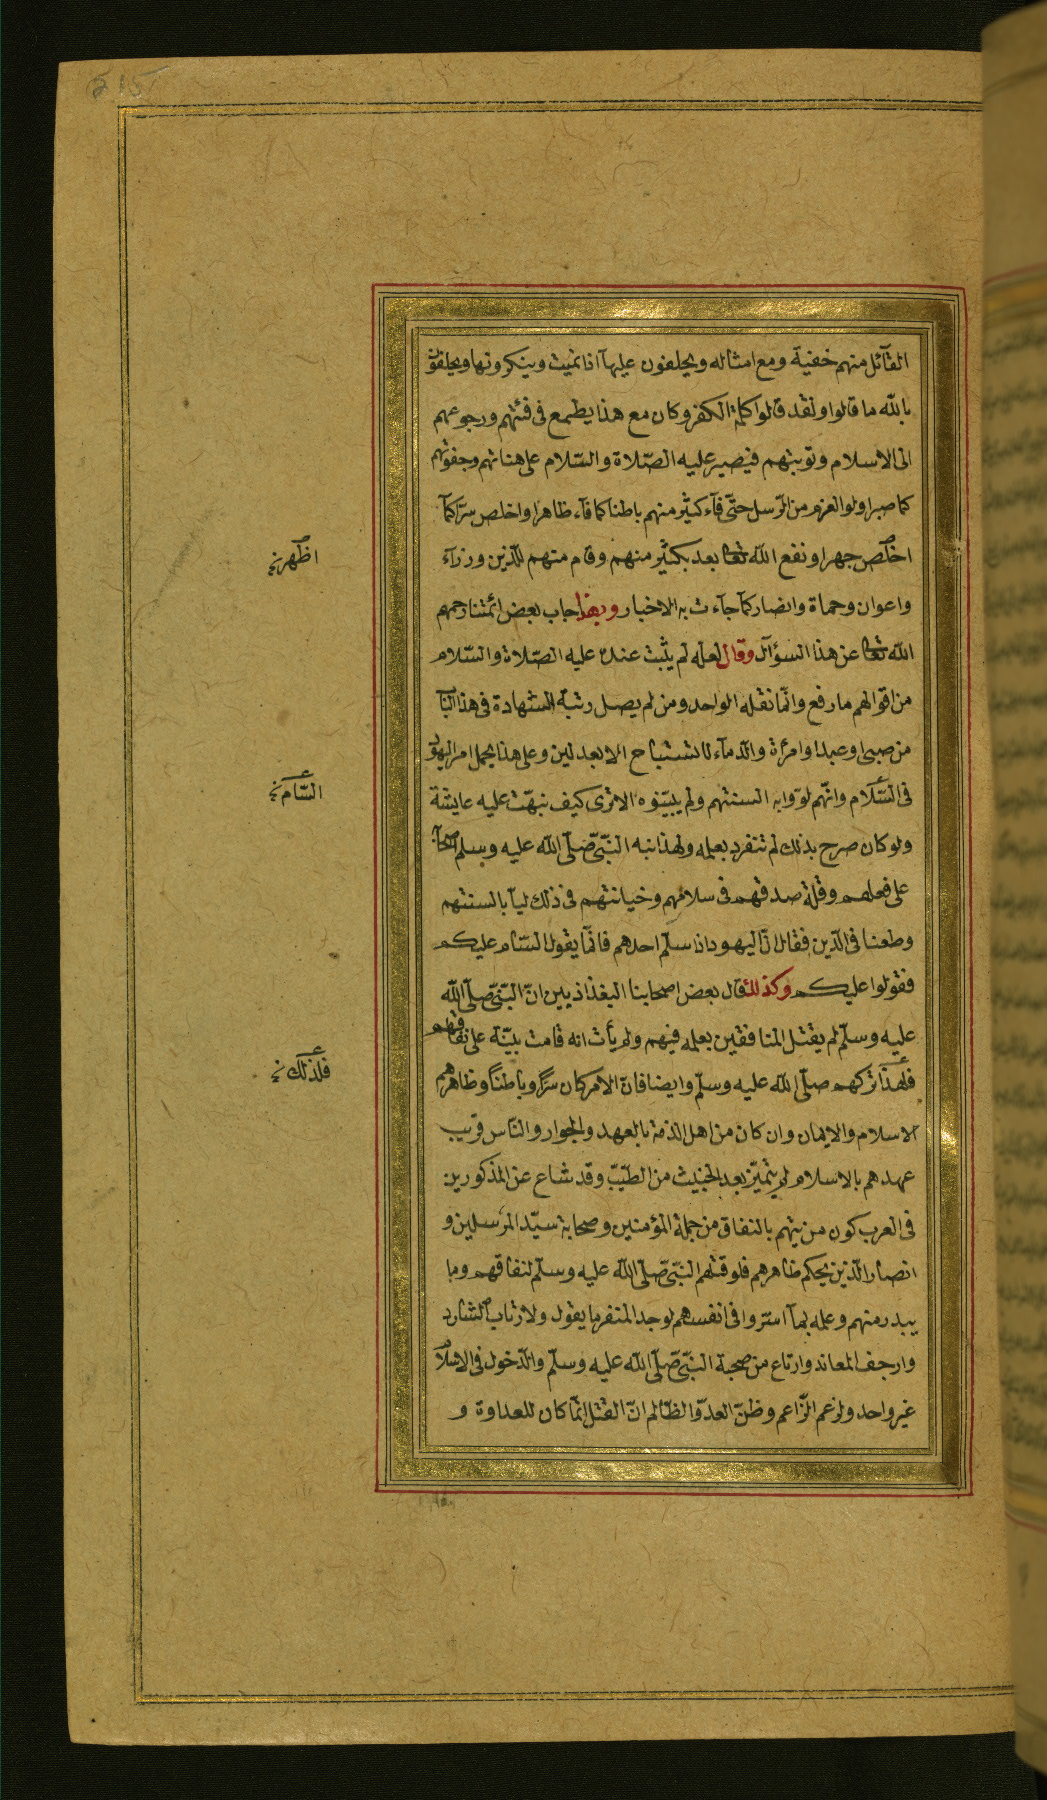 215
القآئل منهم خفية ومع امثاله ويحلفون عليها اذا نميت وينكرونها ويحلفون
بالله ما قالوا ولقد قالوا كلمة الكفر وكان مع هذا يطمع فى فئتهم ورجوعهم
الى الاسلام وتوبتهم فيصبر عليه الصّلاة والسّلام على هناتهم وجفوتهم
كما صبر اولوا العزم من الرّسل حتّى فآء كثير منهم باطنا كما فآء ظاهرا واخلص سرّا كمآ
اخلص جهرا ونفع الله تعالى بعد بكثير منهم وقام منهم للدّين وزرآء
واعوان وحماة وانصار كما جآءت به الاخبار وبهذا اجاب بعض ائمّتنا رحمهم
الله تعالى عن هذا السؤآل وقال لعلّه لم يثبت عنده عليه الصّلاة والسّلام
من اقوالهم ما رفع وانّما نقله الواحد ومن لم يصل رتبة الشهادة فى هذا الباب
من صبى او عبد او امرأة والدّمآء لا تستباح الا بعدلين وعلى هذا يحمل امر اليهود
فى السّلام وانّهم لوّوا به السنتهم ولم يبيّنوه الا ترى كيف نبهّت عليه عايشة
ولو كان صرح بذلك لم تنفرد بعلمه ولهذا نبه النّبىّ صلّى الله عليه وسلم اصحابه
على فعلهم وقلة صدقهم فى سلامهم وخيانتهم فى ذلك ليآ بالسنتهم
وطعنا فى الدّين فقال انّ اليهود اذا سلّم احدهم فانّما يقول السّام عليكم
فقولوا عليكم وكذلك قال بعض اصحابنا البغداذيين انّ النّبىّ صلّى الله
عليه وسلّم لم يقتل المنافقين بعلمه فيهم ولم يأت انه قامت بيّنة على نفاقهم
فلهذا تركهم صلّى الله عليه وسلّم وايضا فان الامر كان سرّا وباطنا وظاهرهم
الاسلام والايمان وان كان من اهل الذمة بالعهد والجوار والنّاس قريب
عهدهم بالاسلام لم يتميّز بعد الخبيث من الطيّب وقد شاع عن المذكورين
فى العرب كون من يتهم بالنفاق من جملة المؤمنين وصحابة سيّد المرسلين و
انصار الدّين بحكم ظاهرهم فلو قتلهم النّبىّ صلّى الله عليه وسلّم لنفاقهم وما
يبدر منهم وعلمه بمآ اسرّوا فى انفسهم لوجد المنفر ما يقول ولارتاب الشارد
وارجف المعاند وارتاع من صحبة النّبىّ صلّى الله عليه وسلّم والدّخول فى الاسلام
غير واحد ولزعم الزّاعم وظنّ العدوّ الظّالم انّ القتل انّما كان للعداوة و
اظهر
السّام
فلذلك